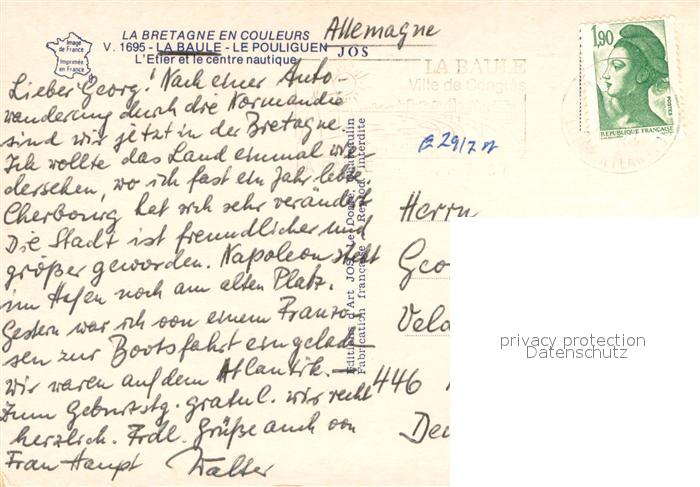 Allemagne
LA BRETAGNE EN COULEURS
Image de France
Imprimée en France
V. 1695 - LA BAULE - LE POULIGUEN JOS
L'Etier et le centre nautique
1,90
POSTES
REPUBLIQUE FRANÇAISE
LA BAULE
Ville de Congrès
Lieber Georg! Nach einer Auto-
wanderung durch die Normandie
sind wir jetzt in der Bretagne.
Ich wollte das Land einmal wie-
dersehen, wo ich fast ein Jahr lebte.
Cherbourg hat sich sehr verändert
Die Stadt ist freundlicher und
größer geworden. Napoleon steht
im Hafen noch am alten Platz.
Gestern war ich von einem Franzo-
sen zur Bootsfahrt eingeladen
wir waren auf dem Atlantik.
Zum Geburtstg. gratul. wir recht
herzlich. Frdl. Grüße auch von
Frau Haupt Walter
Editions d'Art JOS Le Doaré, Châteaulin
Fabrication française - Reprod. interdite
29/7
Herrn
Geo
Vela
446
Deu
privacy protection
Datenschutz